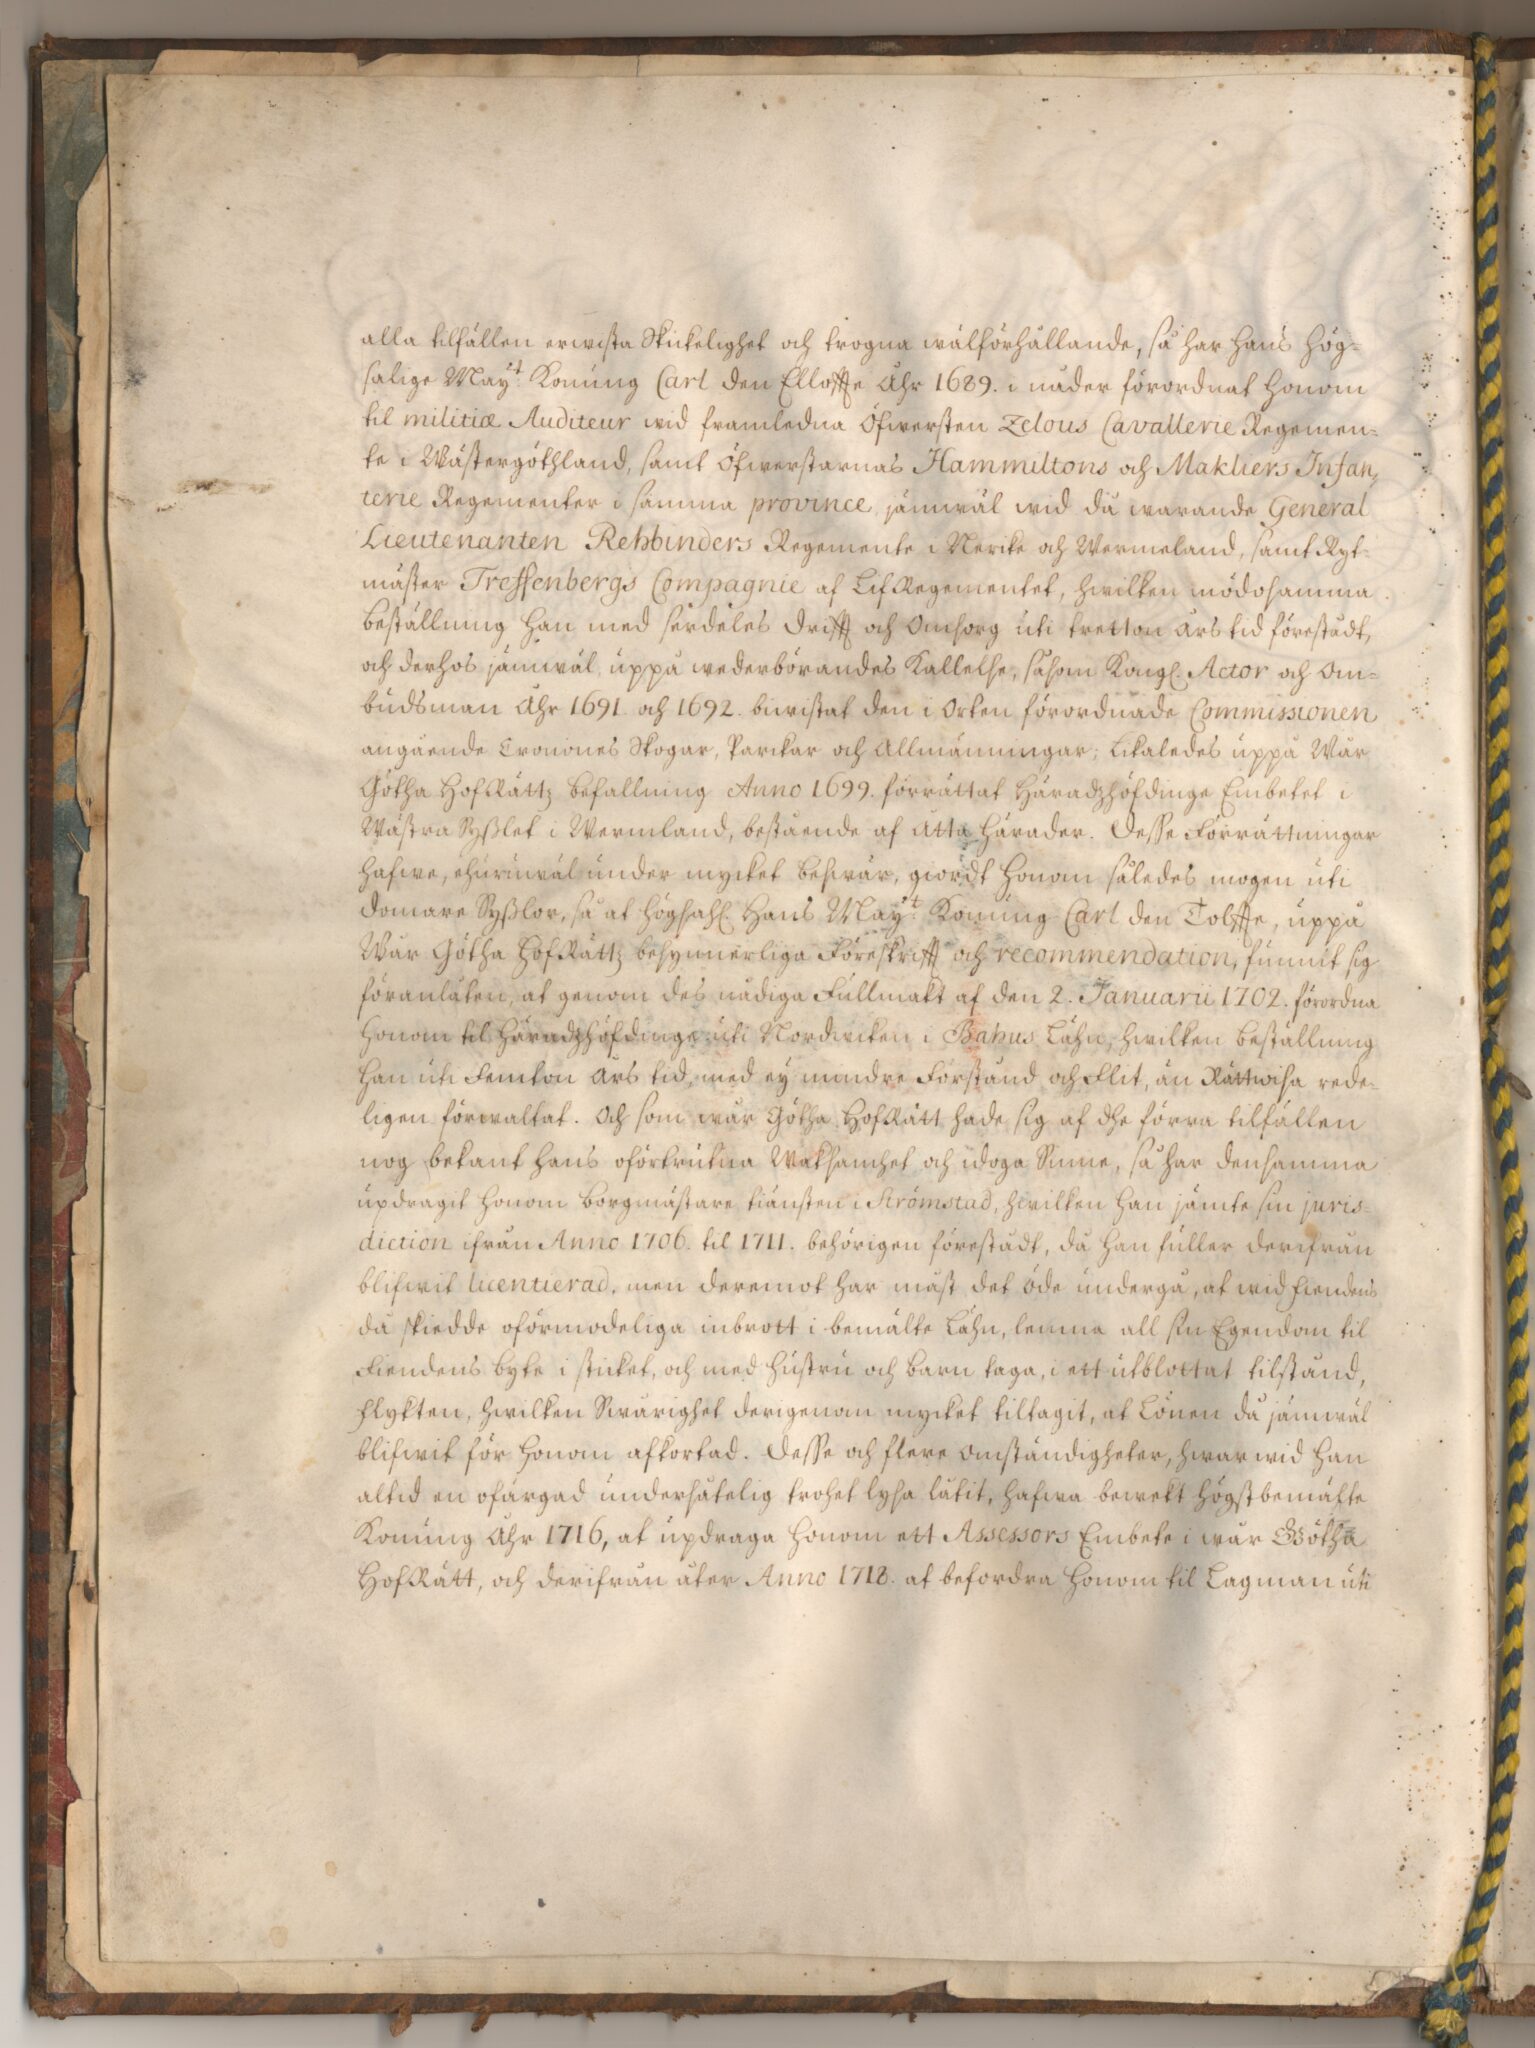 alla tilfällen erwista Skickelighet och trogna wälförhållande, så har Hans Hög=
salige May:t Konung Carl den Elloffte Åhr 1689. i nåder förordnat honom
til militiæ Auditeur wid framledna Öfwersten Zelous Cavallerie Regemen=
te i Wästergöthland, samt Öfwerstarnas Hammiltons och Makliers Infan,
terie Regementer i samma province, jämwäl wid då warande General
Lieutenanten Rehbinders Regemente i Nerike och Wermeland, samt Ryt=
mäster Treffenbergs Compagnie af LifRegementet, hwilken mödosamma
beställning han med särdeles drifft och Omsorg uti tretton års tid förestådt,
och derhos jämwäl, uppå wederbörandes Kallelse, såsom Kongl. Actor och Om=
budsman Åhr 1691 och 1692. biwistat den i Orten förordnade Commissionen
angående Cronones Skogar, Parckar och Allmänningar; Likaledes uppå Wår
Götha HofRättz befallning Anno 1699. förrättat Häradzhöfdinge Embetet i
Wästra Sysslet i Wermland, bestående af åtta Härader. Desse Förrättningar
hafwe, ehuruwäl under mycket beswär, giordt honom således mogen uti
domare Sysslor, så at Högsahl. Hans May:t Konung Carl den Tolffte, uppå
Wår Götha HofRättz besynnerliga Föreskrifft och recommendation, funnit sig
föranlåten, at genom des nådiga Fullmakt af den 2. Januarii 1702. förordna
honom til Häradzhöfdinge uti Nordwiken i Bahus Lähn, hwilken beställning
han uti Femton års tid, med ey mindre Förstånd och Flit, än Rättwisa rede=
ligen förwaltat. Och som wår Götha HofRätt hade sig af dhe förra tilfällen
nog bekant hans oförtrutna Waksamhet och idoga Sinne, så har densamma
updragit honom borgmästare tiänsten i Strömstad, hwilken han jämte sin juris=
diction ifrån Anno 1706. til 1711. behörigen förestådt, då han fuller derifrån
blifwit licentierad, men deremot har måst det öde undergå, at wid fiendens
då skiedde oförmodeliga inbrott i bemälte Lähn, lemna all sin Egendom til
Fiendens byte i sticket, och med hustru och barn taga, i ett utblottat tilstånd,
flykten, hwilken Swårighet derigenom mycket tiltagit, at Lönen då jämwäl
blifwit för honom afkortad. Desse och flere Omständigheter, hwar wid han
altid en ofärgad undersåtelig trohet lysa låtit, hafwa bewekt Högstbemälte
Konung Åhr 1716, at updraga honom ett Assessors Embete i wår Götha
HofRätt, och derifrån åter Anno 1718. at befordra honom til Lagman uti